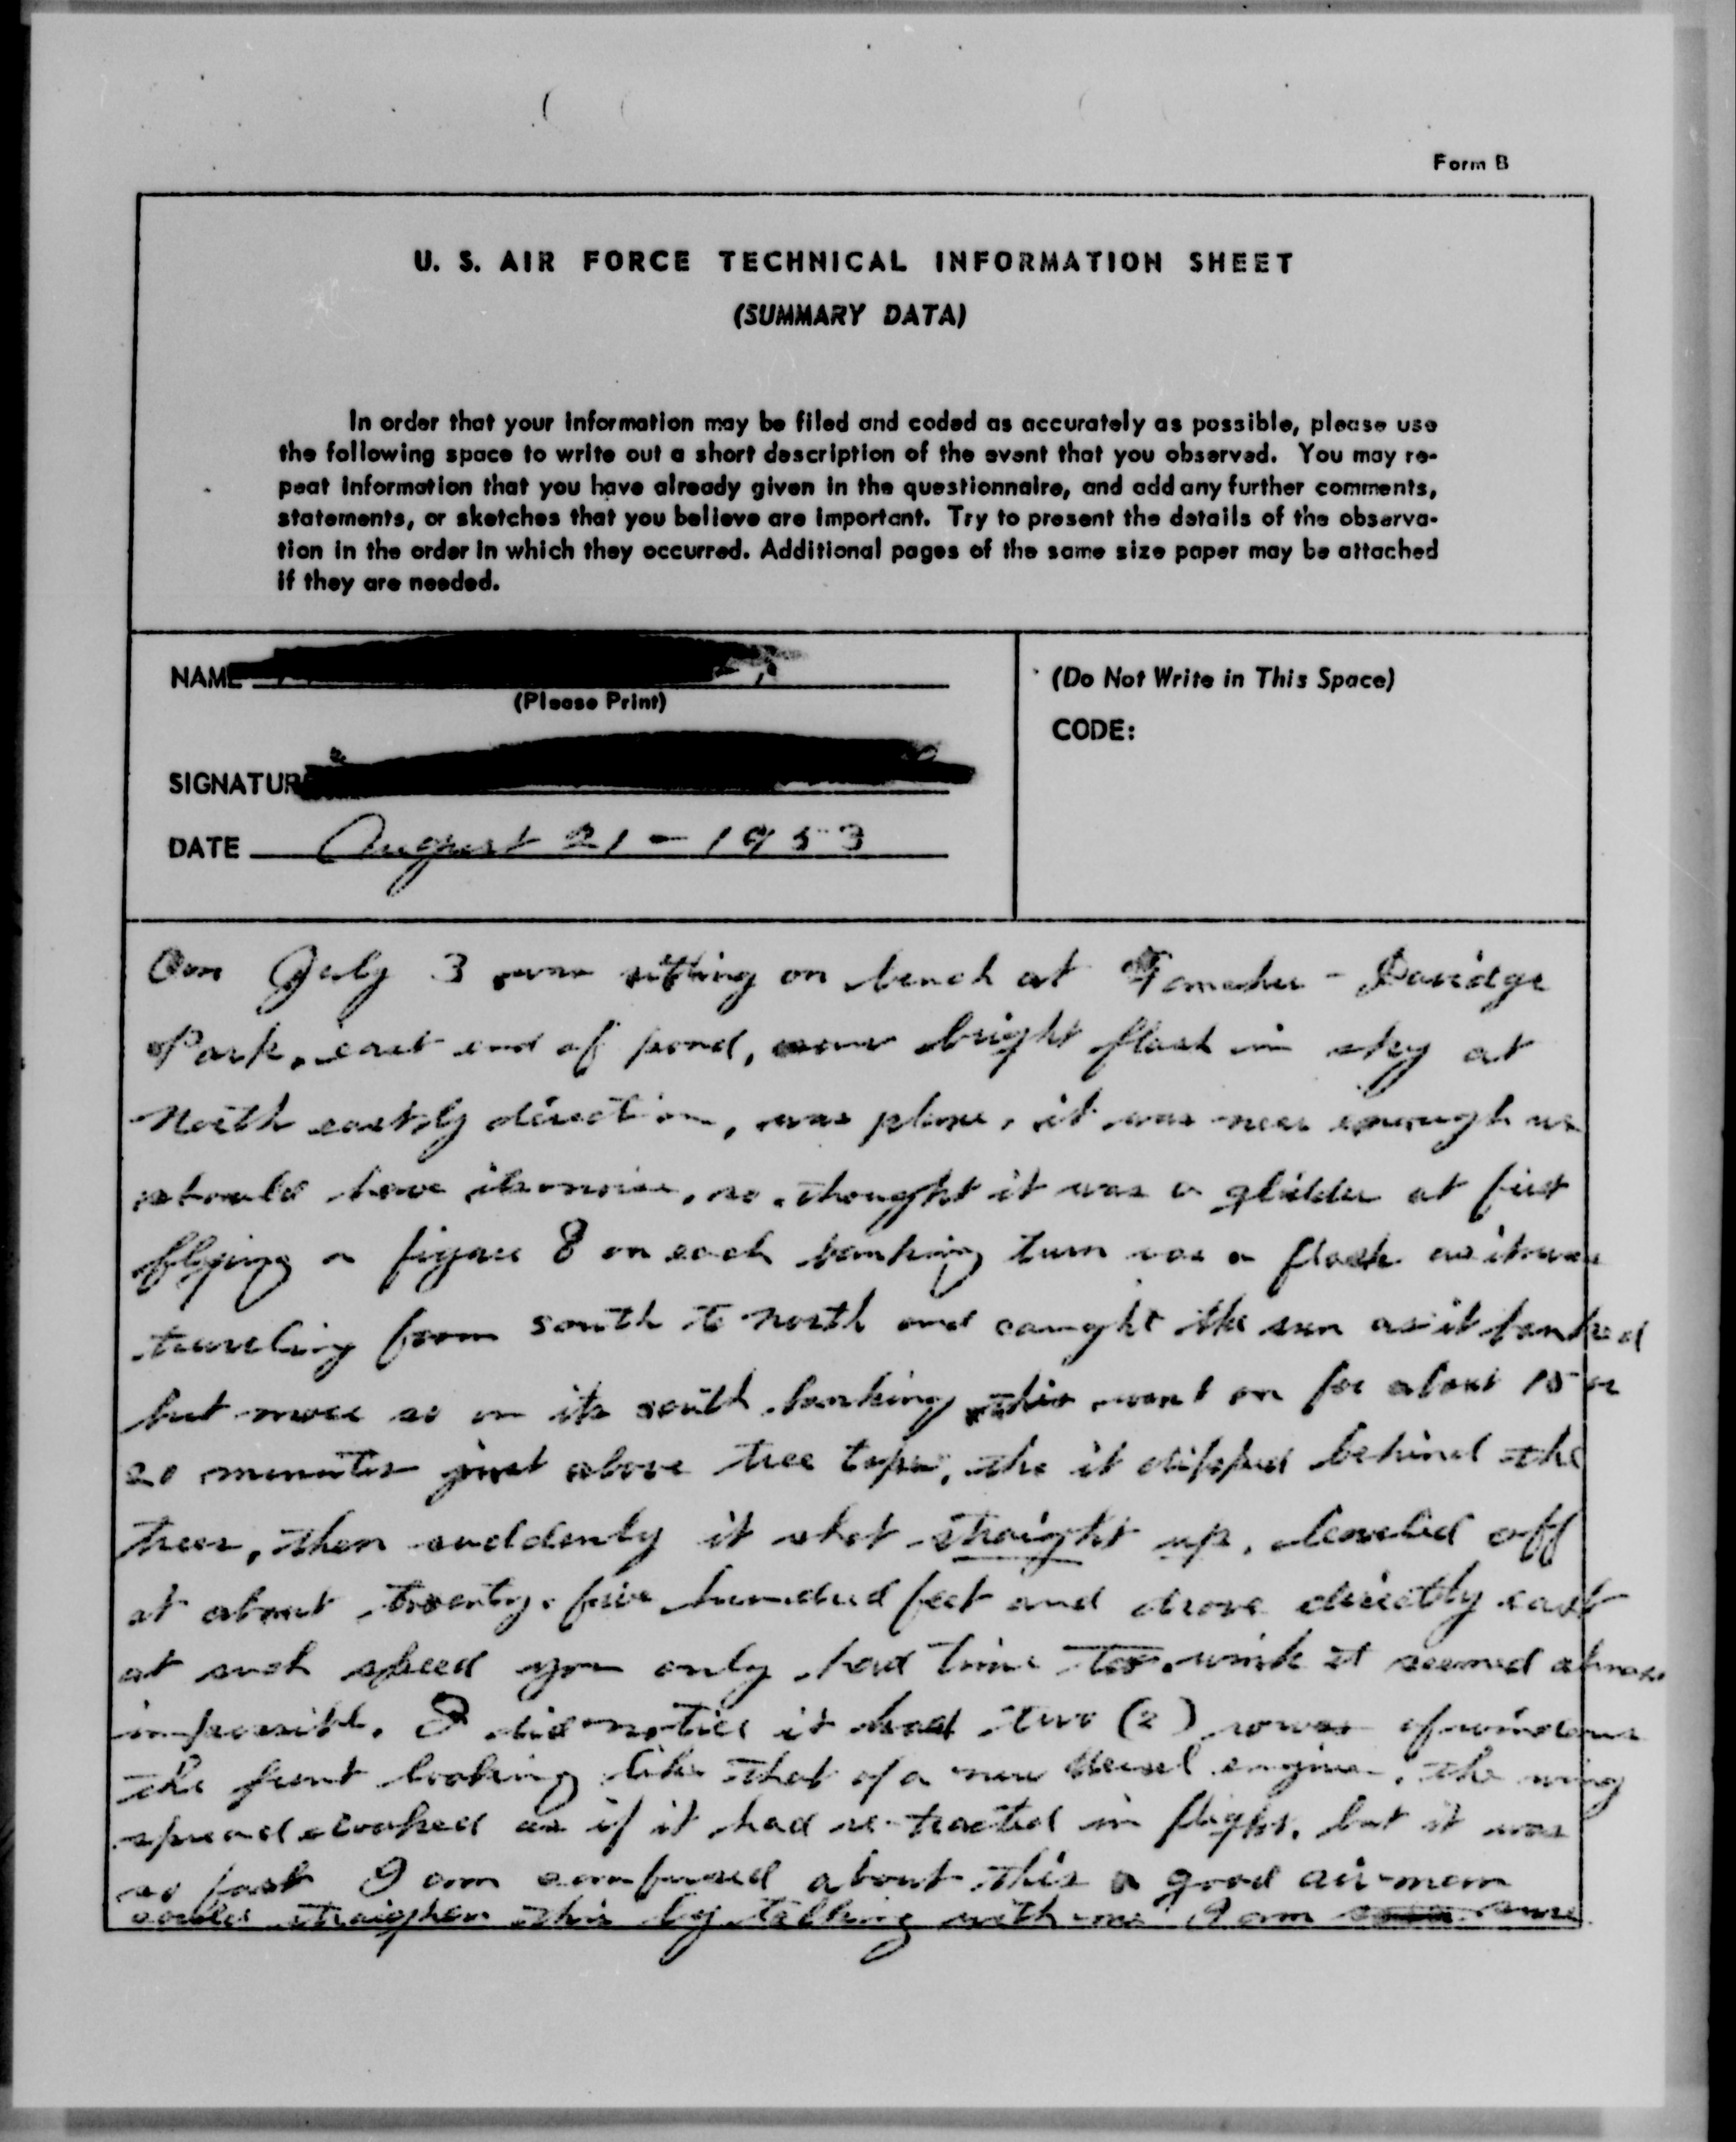 Form B
U. S. AIR FORCE TECHNICAL INFORMATION SHEET
(SUMMARY DATA)
In order that your information may be filed and coded as accurately as possible, please use
the following space to write out a short description of the event that you observed. You may re-
peat information that you have already given in the questionnaire, and add any further comments,
statements, or sketches that you believe are important. Try to present the details of the observa-
tion in the order in which they occurred. Additional pages of the same size paper may be attached
if they are needed.
NAME
(Please Print)
SIGNATUR
DATE August 21 - 1953
(Do Not Write in This Space)
CODE:
On July 3 was sitting on bench at - Davidge
Park, east end of pond, bright flash in sky at
North eastly direction, was plane, it was near enough we
should have its noise, so thought it was a glidder at first
flying a figure 8 on each banking turn was a flash as it was
traveling from south to north and caught the sun as it banked
but more so on its south banking this went on for about 15 or
20 minutes just above tree tops, the it dipped behind the
trees, then suddenly it shot straight up, leveled off
at about twenty-five hundred feet and drove directly east
at such speed you only had time too wink it seemed almost
impossible. I did notice it had two (2) rows of windows
the front looking like that of a new diesel engine, the wing
spread looked as if it had re-tracted in flight, but it was
so fast I am confused about this a good air-man
could straighen this by talking with me I am sure